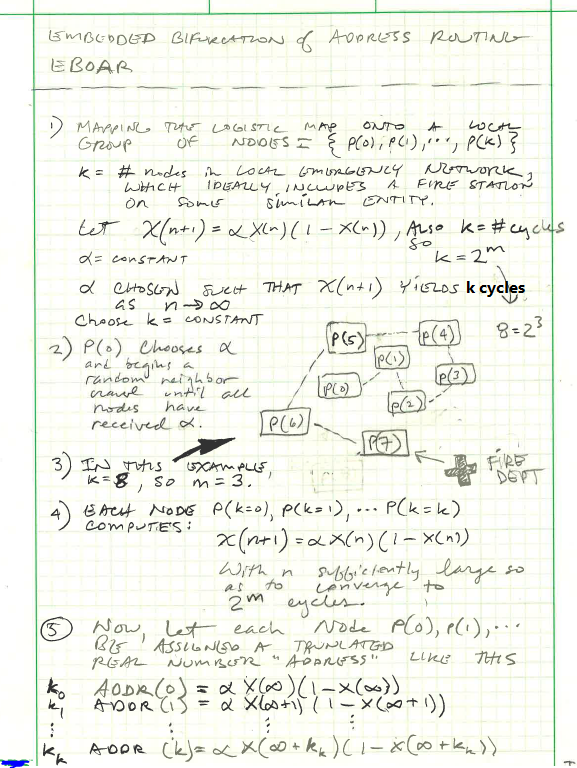 EMBEDDED BIFURCATION of ADDRESS ROUTING
EBOAR
1) MAPPING THE LOGISTIC MAP ONTO A LOCAL
GROUP OF NODES = { P(0), P(1), ..., P(k) }
k = # nodes in LOCAL EMERGENCY NETWORK,
WHICH IDEALLY INCLUDES A FIRE STATION
OR SOME SIMILAR ENTITY.
Let X(n+1) = α X(n) (1 - X(n)), ALSO k = # cycles
α = CONSTANT
so k = 2^m
α CHOSEN SUCH THAT X(n+1) YIELDS k cycles
as n → ∞
Choose k = CONSTANT
8 = 2^3
2) P(0) Chooses α
and begins a
random neighbor
crawl until all
nodes have
received α.
P(5)
P(4)
P(1)
P(0)
P(3)
P(2)
P(6)
P(7)
FIRE
DEPT
3) IN THIS EXAMPLE,
k = 8, so m = 3.
4) EACH NODE P(k=0), P(k=1), ... P(k=k)
COMPUTES:
X(n+1) = α X(n) (1 - X(n))
With n sufficiently large so
as to converge to
2^m cycles.
5 Now, let each Node P(0), P(1), ...
BE ASSIGNED A TRUNLATED
REAL NUMBER "ADDRESS" LIKE THIS
k0 ADDR(0) = α X(∞)(1 - X(∞))
k1 ADDR(1) = α X(∞+1) (1 - X(∞+1))
⋮ ⋮ ⋮ ⋮
kk ADDR (k) = α X(∞ + kk) (1 - X(∞ + kk))